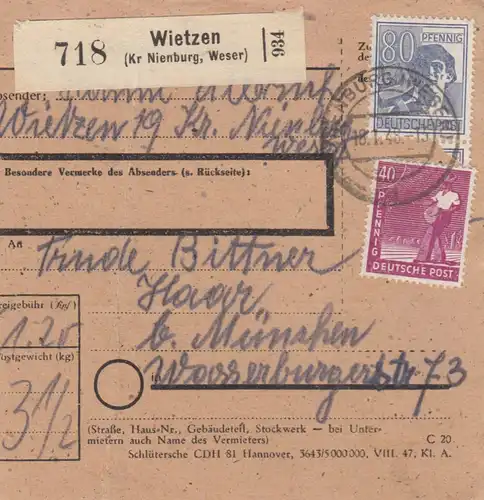 718
Wietzen
(Kr Nienburg, Weser)
934
80 PFENNIG
DEUTSCHE POST
Zu
de
Absender:
Wietzen 19 Kr. Nienburg
Weser
18.1.48
Besondere Vermerke des Absenders (s. Rückseite):
40
PFENNIG
DEUTSCHE POST
An
Trude Bittner
Haar
b. München
in Wasserburgerstr 73
eigebühr (Rpf)
120
ostgewicht (kg)
3 1/2
(Straße, Haus-Nr., Gebäudeteil, Stockwerk — bei Unter-
mietern auch Name des Vermieters)
C 20
Schlütersche CDH 81 Hannover, 3643/5000000, VIII. 47, Kl. A.